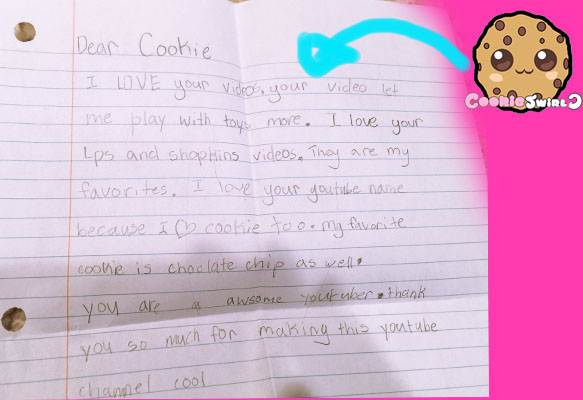 Dear Cookie
I LOVE your videos, your video let
me play with toys more. I love your
Lps and shopkins videos. They are my
favorites. I love your youtube name
because I ♡ cookie too. my favorite
cookie is choclate chip as well.
you are a awsome youtuber. thank
you so much for making this youtube
channel cool
CookieSwirlC